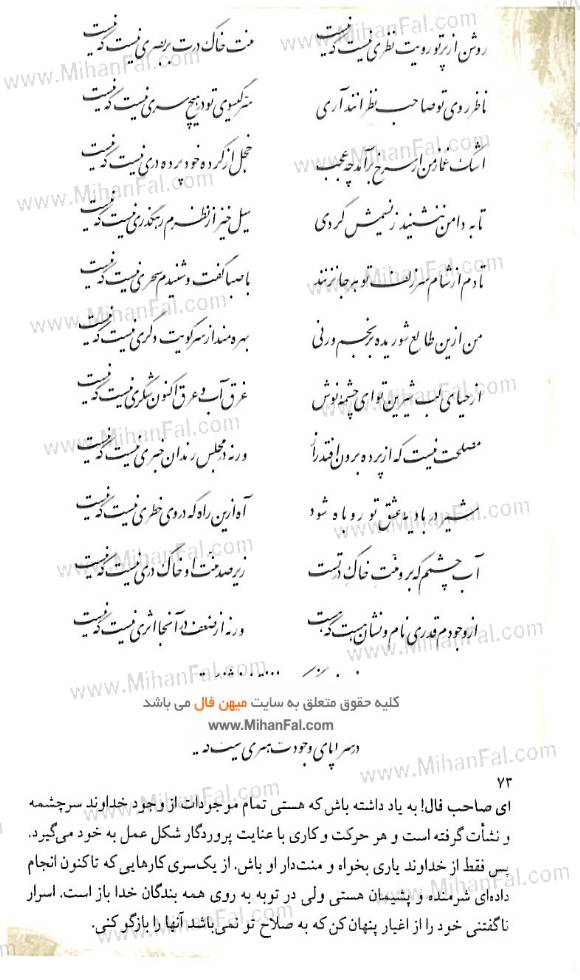 روشن از پرتو رویت نظری نیست که نیست منت خاک درت بر بصری نیست که نیست
ناظر روی تو صاحب نظرانند آری سر گیسوی تو در هیچ سری نیست که نیست
اشک غماز من ار سرخ برآمد چه عجب خجل از کرده خود پرده دری نیست که نیست
تا به دامن ننشیند ز نسیمش گردی سیل خیز از نظرم رهگذری نیست که نیست
تا دم از شام سر زلف تو هر جا نزنند با صبا گفت و شنیدم سحری نیست که نیست
من ازین طالع شوریده برنجم ورنی بهره مند از سر کویت دگری نیست که نیست
از حیای لب شیرین تو ای چشمه نوش غرق آب و عرق اکنون شکری نیست که نیست
مصلحت نیست که از پرده برون افتد راز ورنه در مجلس رندان خبری نیست که نیست
شیر در بادیه عشق تو روباه شود آه ازین راه که در وی خطری نیست که نیست
آب چشمم که برو منت خاک در تست زیر صد منت او خاک دری نیست که نیست
از وجودم قدری نام و نشان هست که هست ورنه از ضعف در آنجا اثری نیست که نیست
کلیه حقوق متعلق به سایت میهن فال می باشد
www.MihanFal.com
در سراپای وجودت هنری نیست که نیست
۷۳
ای صاحب فال! به یاد داشته باش که هستی تمام موجودات از وجود خداوند سرچشمه
و نشأت گرفته است و هر حرکت و کاری با عنایت پروردگار شکل عمل به خود می‌گیرد.
پس فقط از خداوند یاری بخواه و منت‌دار او باش. از یک‌سری کارهایی که تاکنون انجام
داده‌ای شرمنده و پشیمان هستی ولی در توبه به روی همه بندگان خدا باز است. اسرار
ناگفتنی خود را از اغیار پنهان کن که به صلاح تو نمی‌باشد آنها را بازگو کنی.